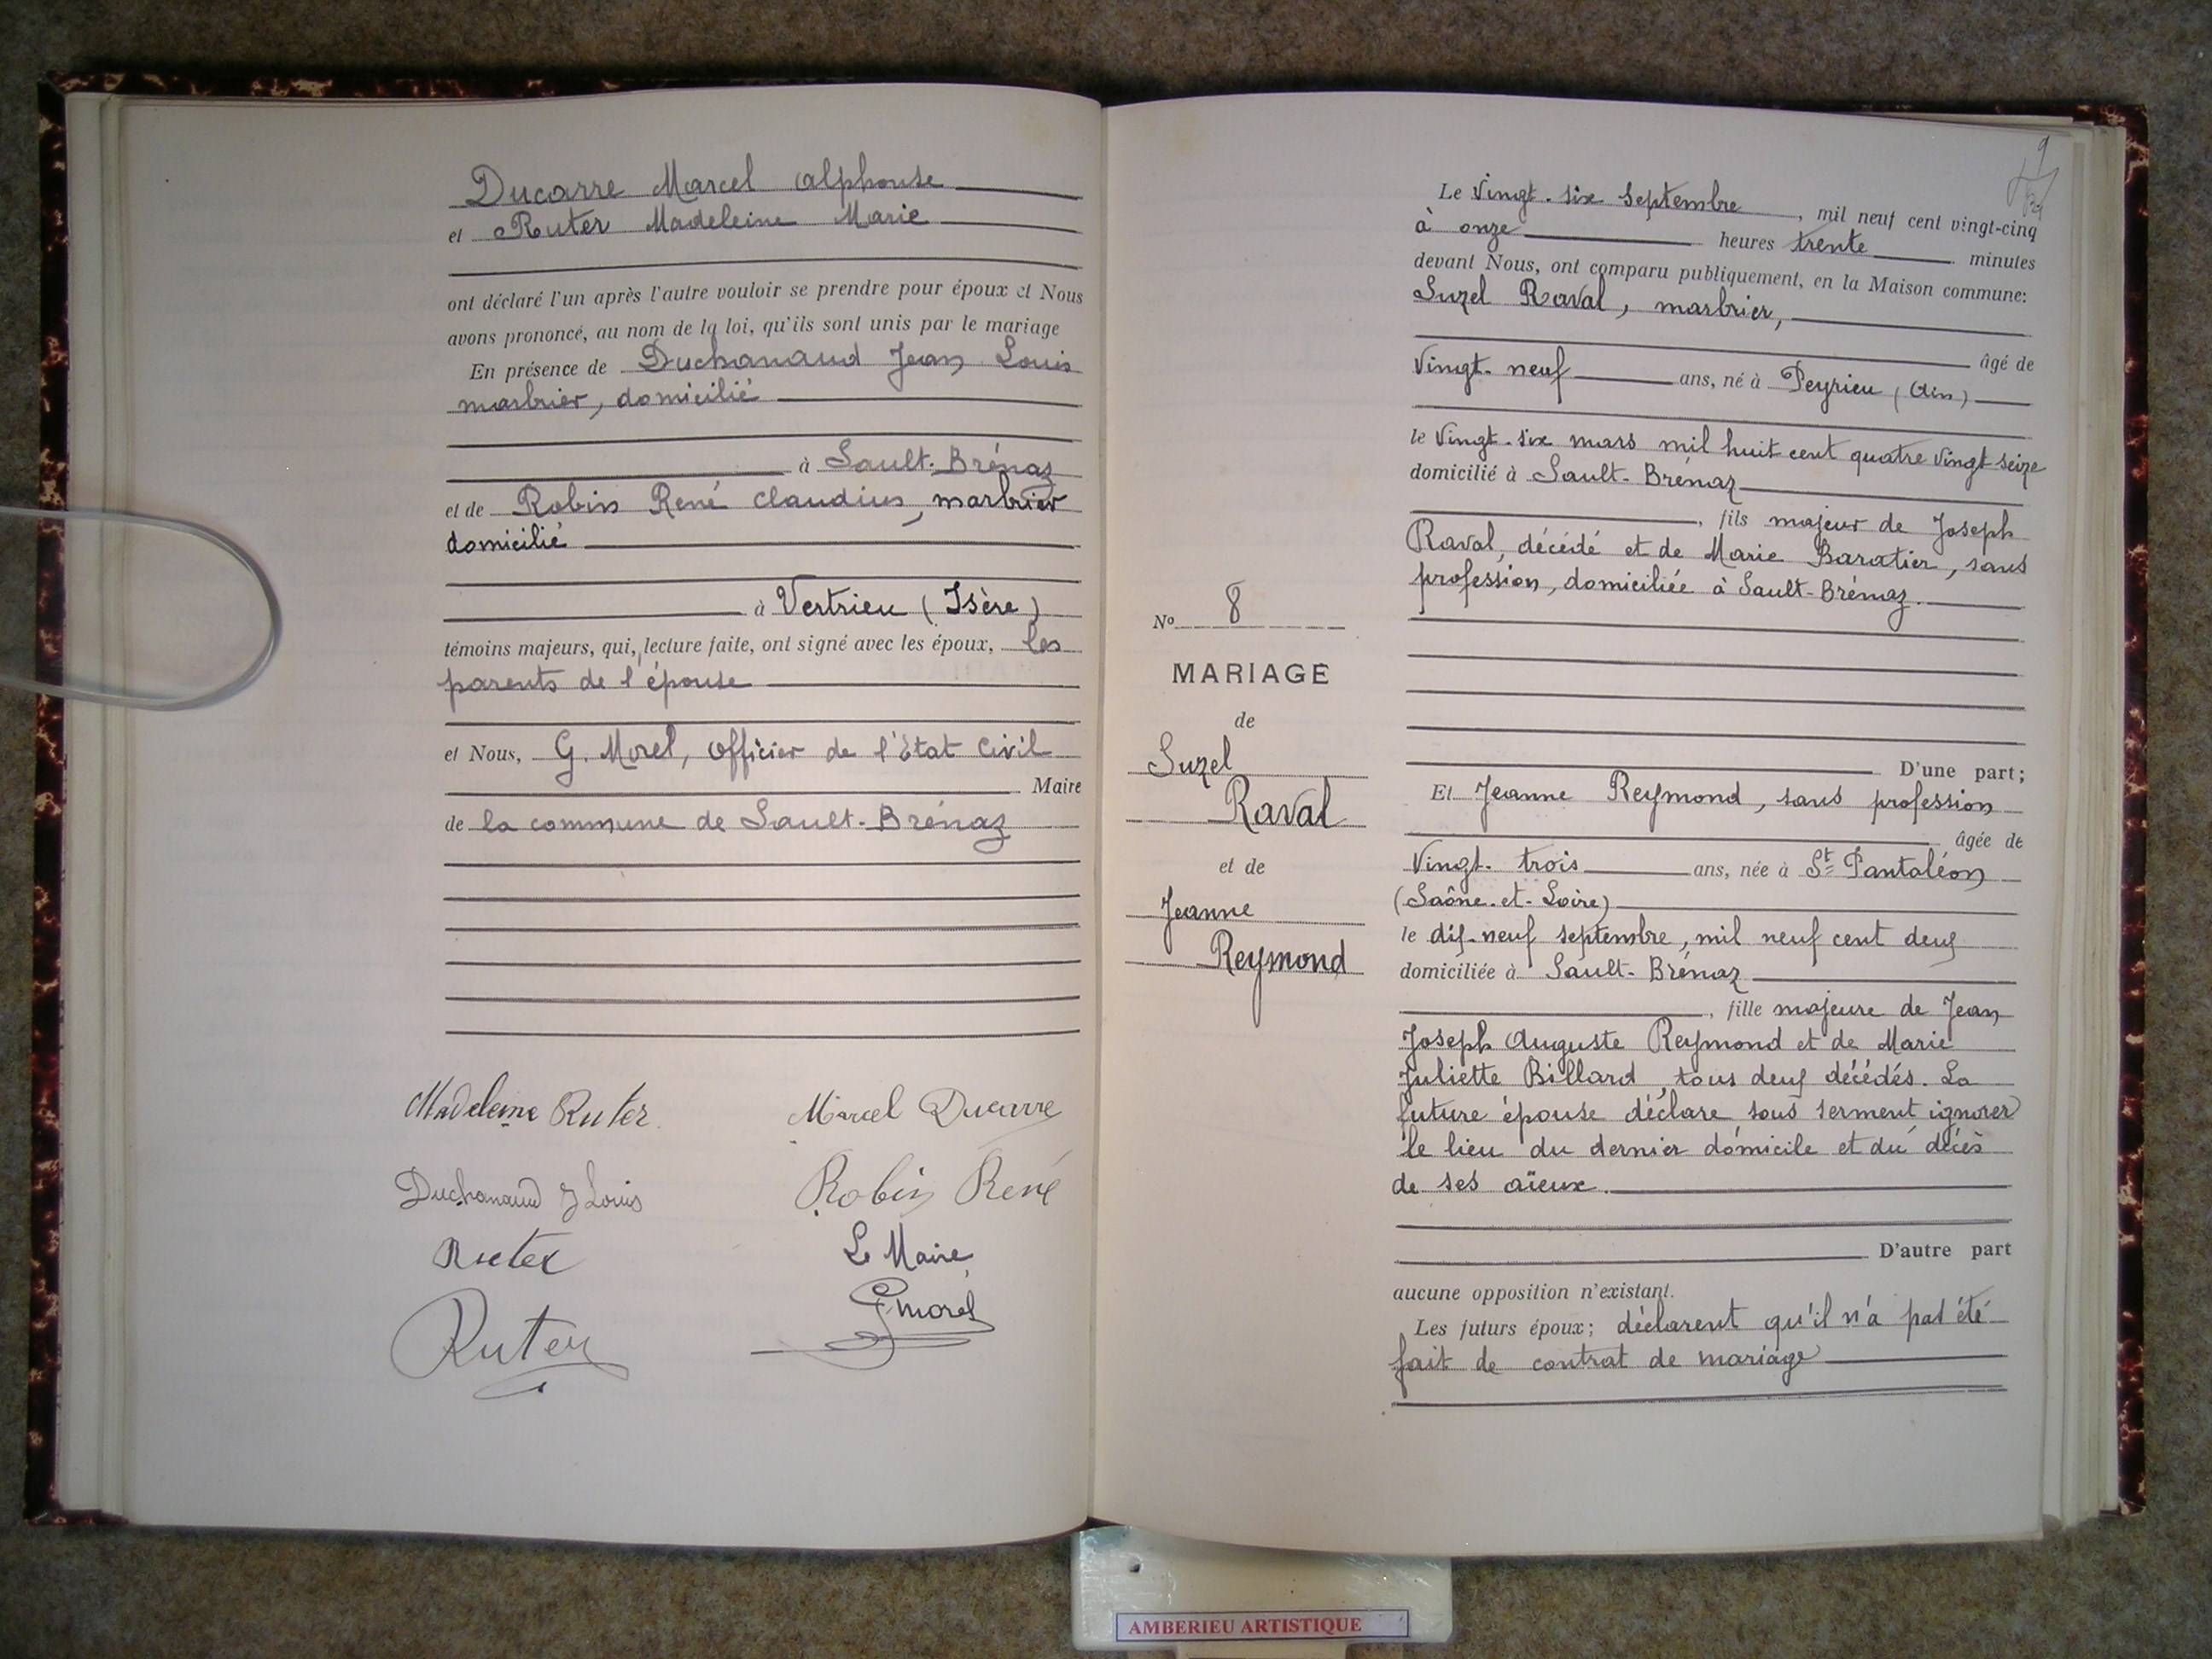 Ducarre Marcel Alphonse
et Ruter Madeleine Marie
ont déclaré l'un après l'autre vouloir se prendre pour époux et Nous
avons prononcé, au nom de la loi, qu'ils sont unis par le mariage
En présence de Duchanaud Jean Louis
marbrier, domicilié
à Sault-Brénaz
et de Robin René Claudius, marbrier
domicilié
à Vertrieu (Isère)
témoins majeurs, qui, lecture faite, ont signé avec les époux, les
parents de l'épouse
et Nous, G. Morel, Officier de l'Etat Civil
Maire
de la commune de Sault-Brénaz
Madeleine Ruter
Marcel Ducarre
Duchanaud J Louis
Robin René
Ruter
Le Maire,
Ruter
G. Morel
No 8
MARIAGE
de
Suzel
Raval
et de
Jeanne
Reymond
9
Le Vingt-six Septembre, mil neuf cent vingt-cinq
à onze heures trente minutes
devant Nous, ont comparu publiquement, en la Maison commune:
Suzel Raval, marbrier,
âgé de
Vingt-neuf ans, né à Peyrieu (Ain)
le Vingt-six mars mil huit cent quatre vingt seize
domicilié à Sault-Brénaz
, fils majeur de Joseph
Raval, décédé et de Marie Baratier, sans
profession, domiciliée à Sault-Brénaz.
D'une part;
Et Jeanne Reymond, sans profession
âgée de
Vingt-trois ans, née à St Pantaléon
(Saône-et-Loire)
le dix-neuf septembre, mil neuf cent deux
domiciliée à Sault-Brénaz
, fille majeure de Jean
Joseph Auguste Reymond et de Marie
Juliette Billard, tous deux décédés. La
future épouse déclare sous serment ignorer
le lieu du dernier domicile et du décès
de ses aïeux.
D'autre part
aucune opposition n'existant.
Les futurs époux; déclarent qu'il n'a pas été
fait de contrat de mariage
AMBERIEU ARTISTIQUE